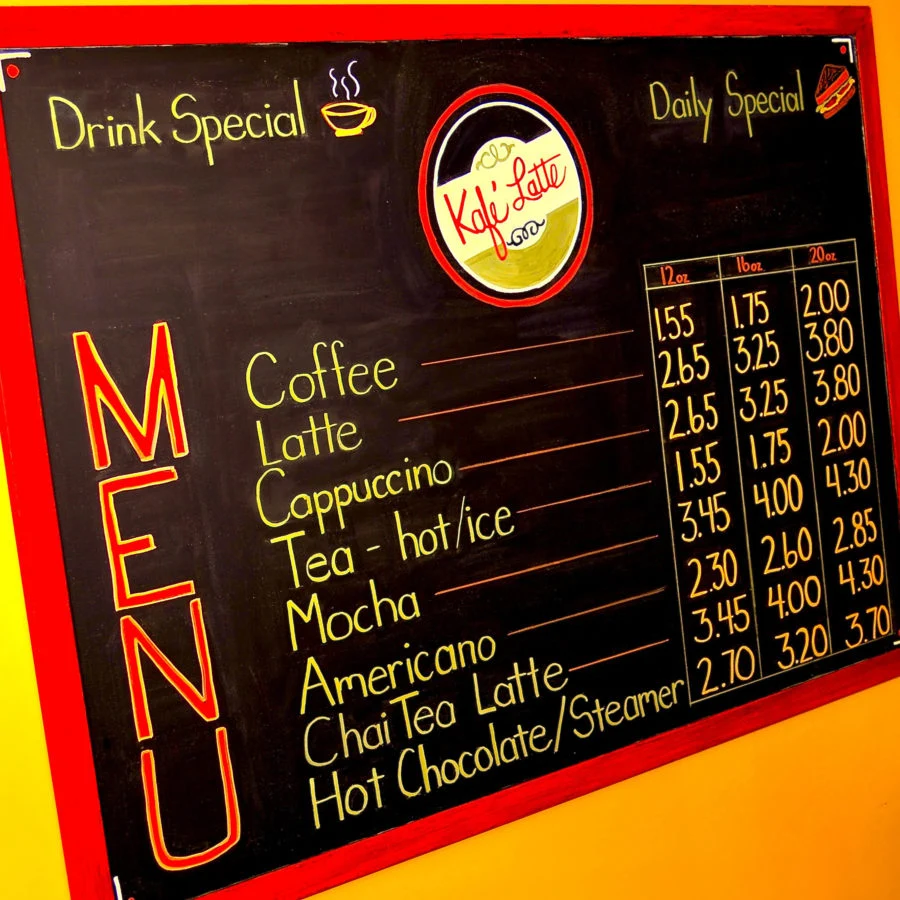 Drink Special
Daily Special
Kafé Latte
MENU
12oz 16oz 20oz
Coffee 1.55 1.75 2.00
Latte 2.65 3.25 3.80
Cappuccino 2.65 3.25 3.80
Tea - hot/ice 1.55 1.75 2.00
Mocha 3.45 4.00 4.30
Americano 2.30 2.60 2.85
Chai Tea Latte 3.45 4.00 4.30
Hot Chocolate/Steamer 2.70 3.20 3.70